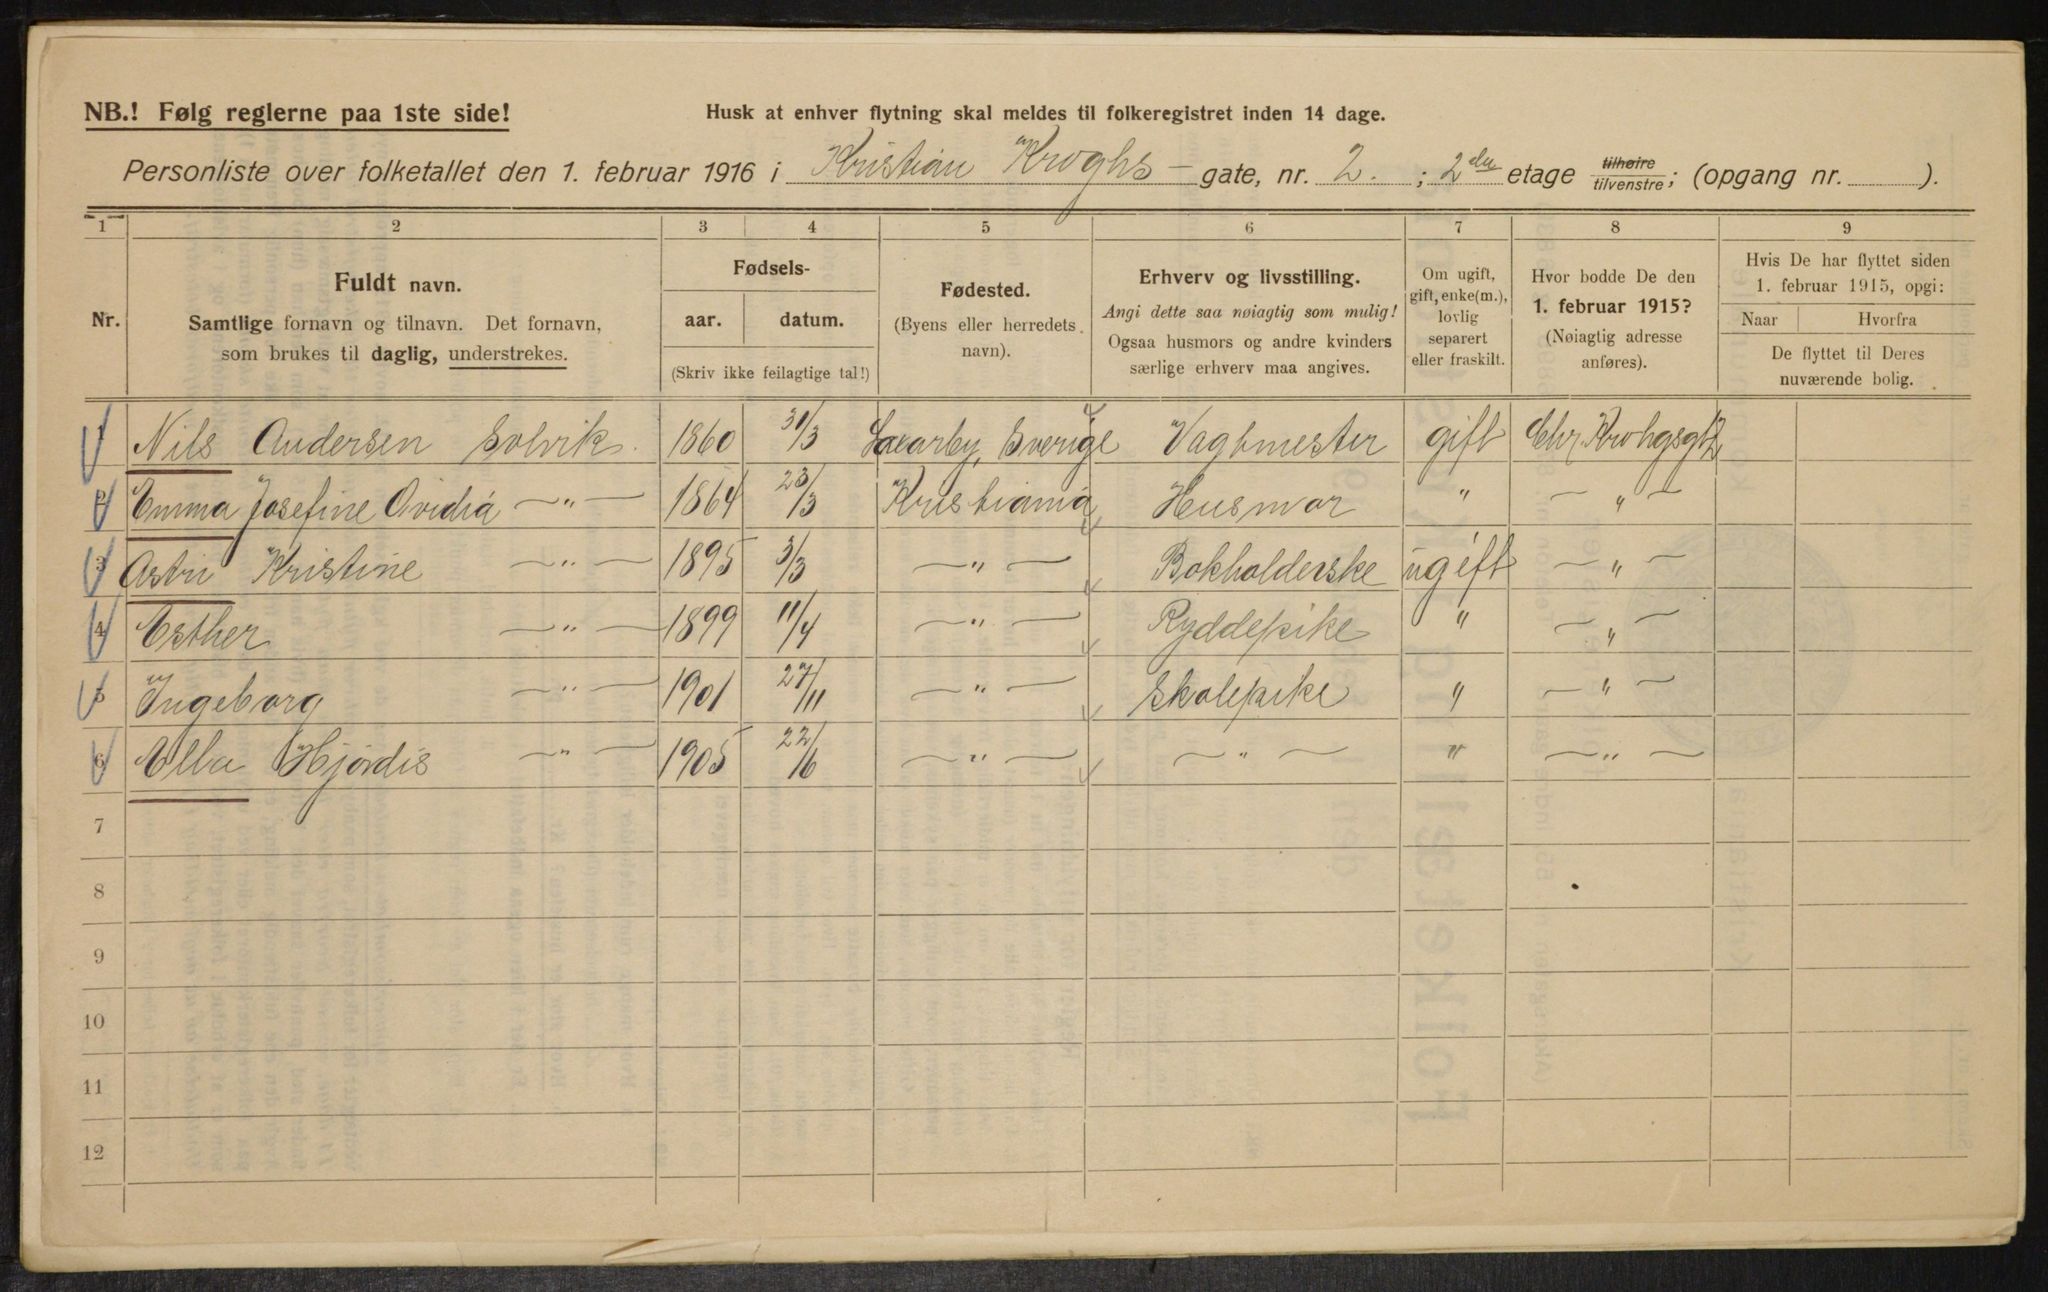 NB.! Følg reglerne paa 1ste side!
Husk at enhver flytning skal meldes til folkeregistret inden 14 dage.
Personliste over folketallet den 1. februar 1916 i Kristian Kroghs - gate, nr. 2. ; 2den etage tilhøire/tilvenstre; (opgang nr. ).
1 2 3 4 5 6 7 8 9
Nr.
Fuldt navn.
Samtlige fornavn og tilnavn. Det fornavn,
som brukes til daglig, understrekes.
Fødsels-
aar. datum.
(Skriv ikke feilagtige tal!)
Fødested.
(Byens eller herredets
navn).
Erhverv og livsstilling.
Angi dette saa nøiagtig som mulig!
Ogsaa husmors og andre kvinders
særlige erhverv maa angives.
Om ugift,
gift, enke(m.),
lovlig
separert
eller fraskilt.
Hvor bodde De den
1. februar 1915?
(Nøiagtig adresse
anføres).
Hvis De har flyttet siden
1. februar 1915, opgi:
Naar Hvorfra
De flyttet til Deres
nuværende bolig.
1 Nils Andersen Solvik. 1860 31/3 Sverige Vagtmester gift Chr. Krohgsgt 2
2 Emma Josefine Ovidia —"— 1864 23/3 Kristiania Husmor " —"—
3 Astri Kristine —"— 1895 3/3 —"— Bokholderske ugift —"—
4 Esther —"— 1899 11/4 —"— Ryddepike " —"—
5 Ingeborg —"— 1901 27/11 —"— Skolepike " —"—
6 Ella Hjørdis —"— 1905 22/6 —"— —"— " —"—
7
8
9
10
11
12